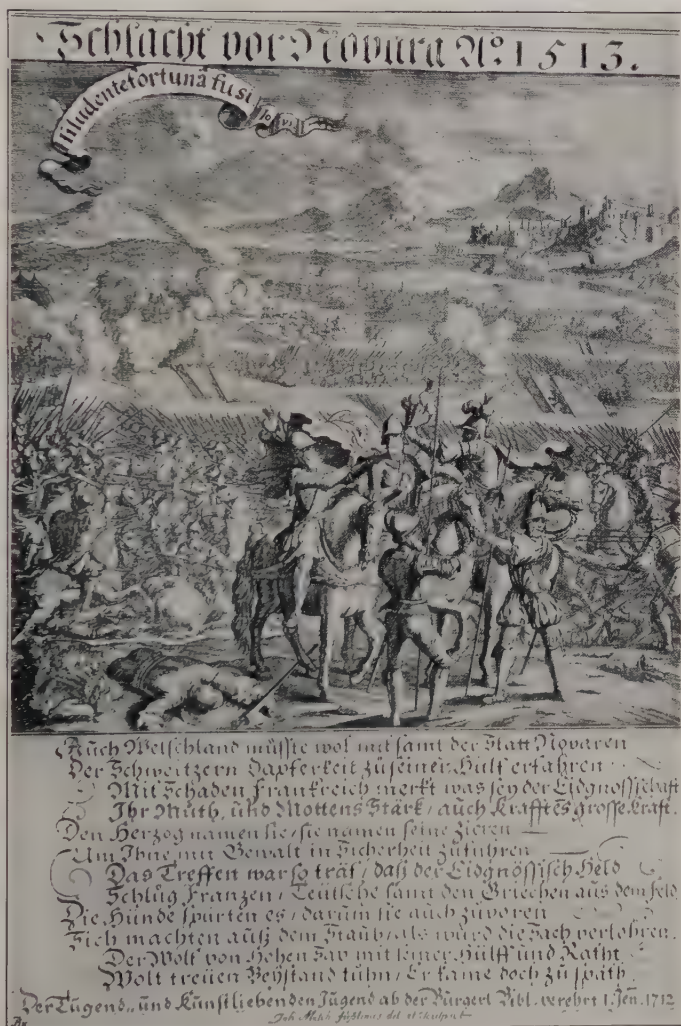 Schlacht vor Novara Aº. 1513.
Illudente fortunâ fusi
Jovi
Auch Welschland müsste wol mit samt der Statt Novaren
Der Schweitzern Dapferkeit zu seiner Hülf erfahren
Mit Schaden Frankreich merkt was sey der Eidgnossschaft
Ihr Muth, und Mottens Stärk, auch Krafft es grosse Kraft.
Den Herzog namen sie, sie namen seine Zieren
Um Ihne mit Gewalt in Sicherheit zuführen
Das Treffen war so träf, dass der Eidgnössisch Held
Schlug Franzen, Teütsche samt den Griechen aus dem feld
Die Hünde spürten es, darum sie auch zuvoren
Sich machten auss dem Staub, als würd die Sach verlohren.
Der Wolt von Hohen Sax mit seiner Hülff und Rath
Wolt treüen Beystand tuhn, Er kame doch zu spath.
Der Tugend- und Kunstliebenden Jugend ab der Bürgerl. Bibl. verehrt 1. Jen. 1712
Joh. Melch. füsslinus del. et sculpsit